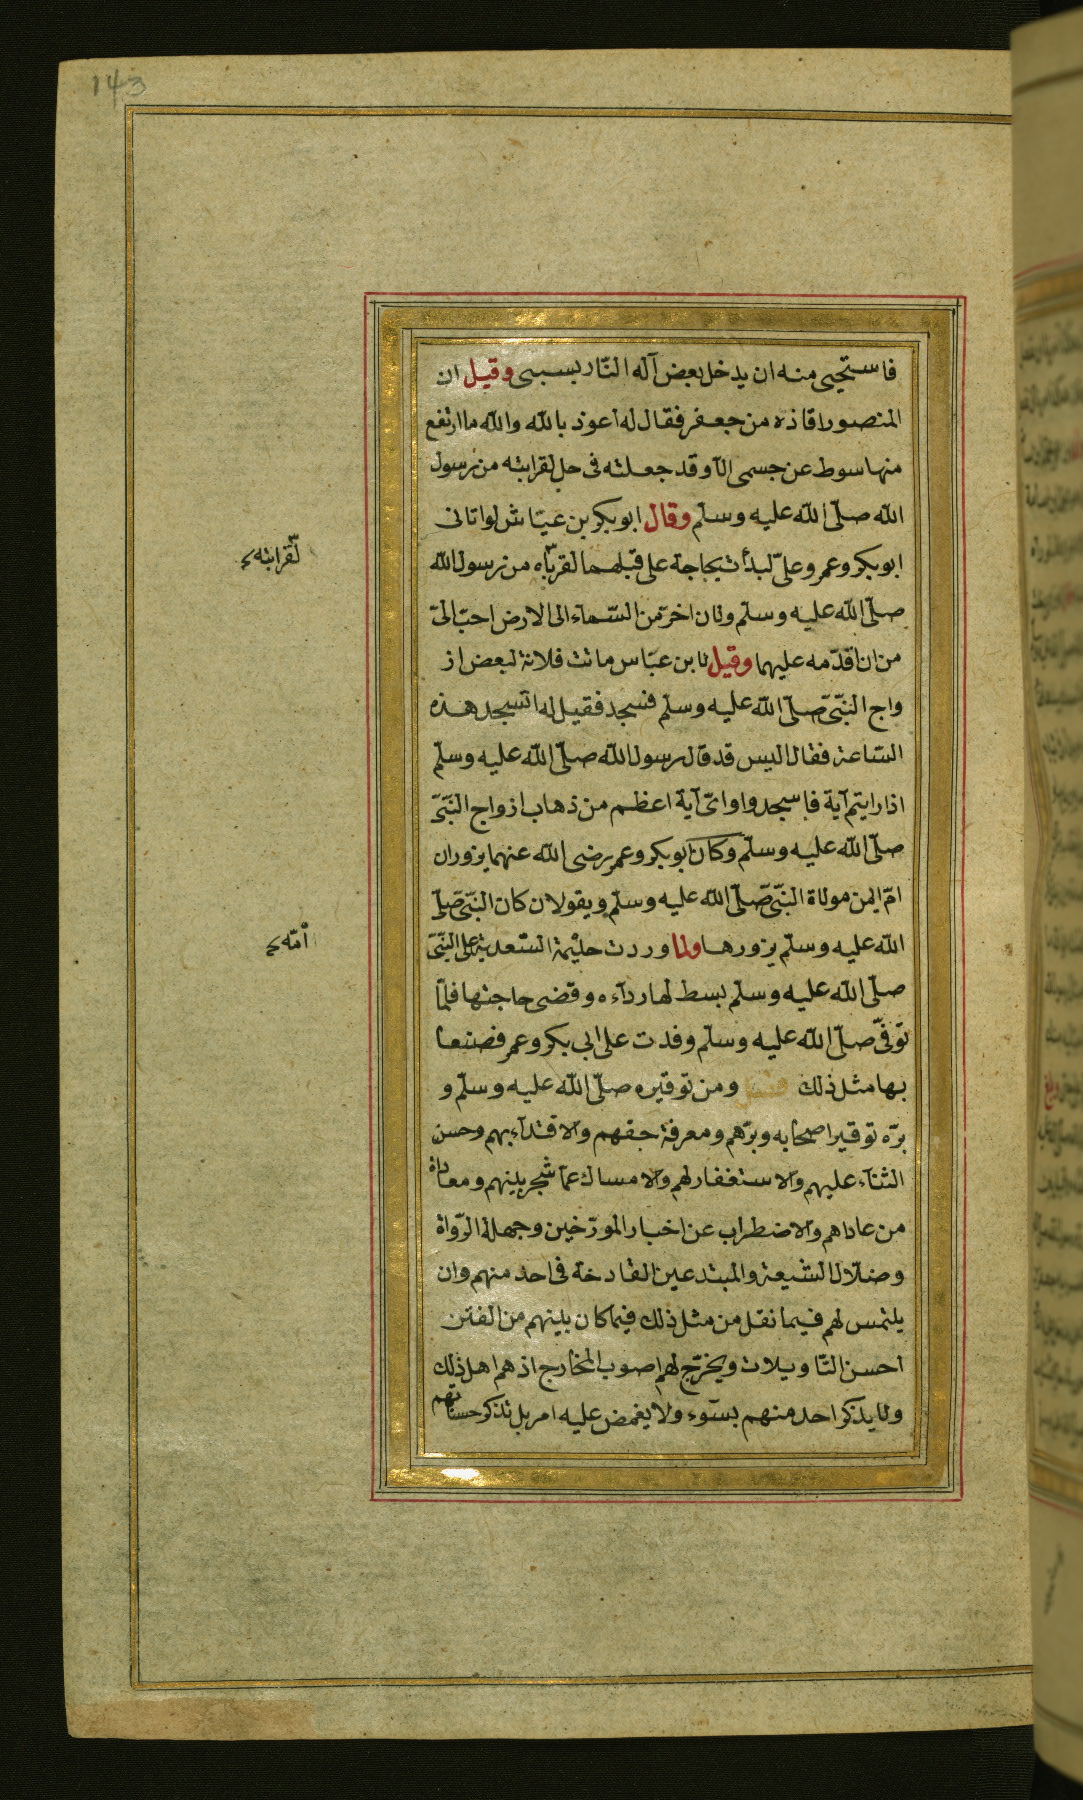 143
فاستحيى منه ان يدخل بعض آله النّار بسببى وقيل ان
المنصور اقاده من جعفر فقال له اعوذ بالله والله ما ارتفع
منها سوط عن جسمى الّا وقد جعلته فى حل لقرابته من رسول
الله صلّى الله عليه وسلّم وقال ابو بكر بن عيّاش لو اتانى
ابو بكر وعمر وعلىّ لبدأت بحاجة على قبلهما لقرباه من رسول الله
لقرابته
صلّى الله عليه وسلّم ولان اخرّ من السّماء الى الارض احبّ الىّ
من ان اقدّمه عليهما وقيل لابن عبّاس ماتت فلانة لبعض از
واج النّبىّ صلّى الله عليه وسلّم فسجد فقيل له اتسجد هذه
السّاعة فقال اليس قد قال رسول الله صلّى الله عليه وسلّم
اذا رايتم آية فاسجدوا واىّ آية اعظم من ذهاب ازواج النّبىّ
صلّى الله عليه وسلّم وكان ابو بكر وعمر رضى الله عنهما يزوران
امّ ايمن مولاة النّبىّ صلّى الله عليه وسلّم ويقولان كان النّبىّ صلّى
الله عليه وسلّم يزورها ولما وردت حليمة السّعدية على النّبىّ
امّه
صلّى الله عليه وسلّم بسط لها ردآءه وقضى حاجتها فلمّا
توفّى صلّى الله عليه وسلّم وفدت على ابى بكر وعمر فصنعا
بها مثل ذلك فصل ومن توقيره صلّى الله عليه وسلّم و
برّه توقير اصحابه وبرّهم ومعرفة حقهم والاقتدآء بهم وحسن
الثنآء عليهم والاستغفار لهم والامساك عمّا شجر بينهم ومعاداة
من عاداهم والاضطراب عن اخبار المورّخين وجهلة الرّواة
وضلّال الشيعة والمبتدعين القادحة فى احد منهم وان
يلتمس لهم فيما نقل من مثل ذلك فيما كان بينهم من الفتن
احسن التّاويلات ويخرّج لهم اصوب المخارج اذ هم اهل ذلك
ولا يذكر احد منهم بسوء ولا يغمض عليه امر بل تذكر حسناتهم